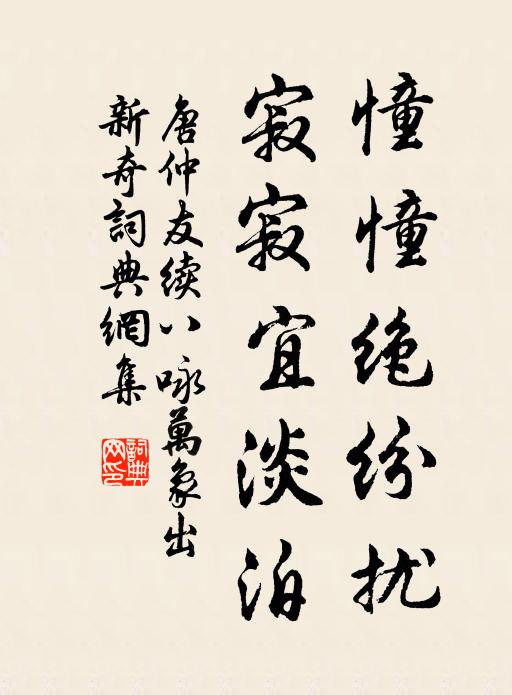 憧憧绝纷扰
寂寂宜淡泊
唐仲友续八咏萬象出
新奇詞典網集
詞典
网印